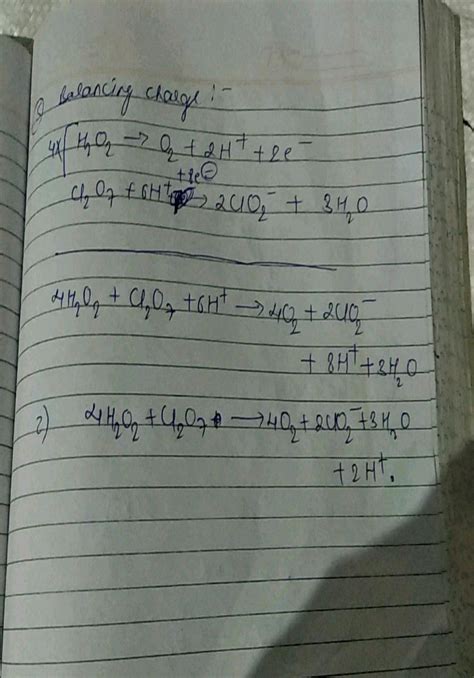 g) Balancing charge :-
4x[ H₂O₂ → O₂ + 2H⁺ + 2e⁻
+8e⊖
Cl₂O₇ + 6H⁺ → 2ClO₂⁻ + 3H₂O
4H₂O₂ + Cl₂O₇ + 6H⁺ → 4O₂ + 2ClO₂⁻
+ 8H⁺ + 3H₂O
r) 4H₂O₂ + Cl₂O₇ → 4O₂ + 2ClO₂⁻ + 3H₂O
+ 2H⁺.